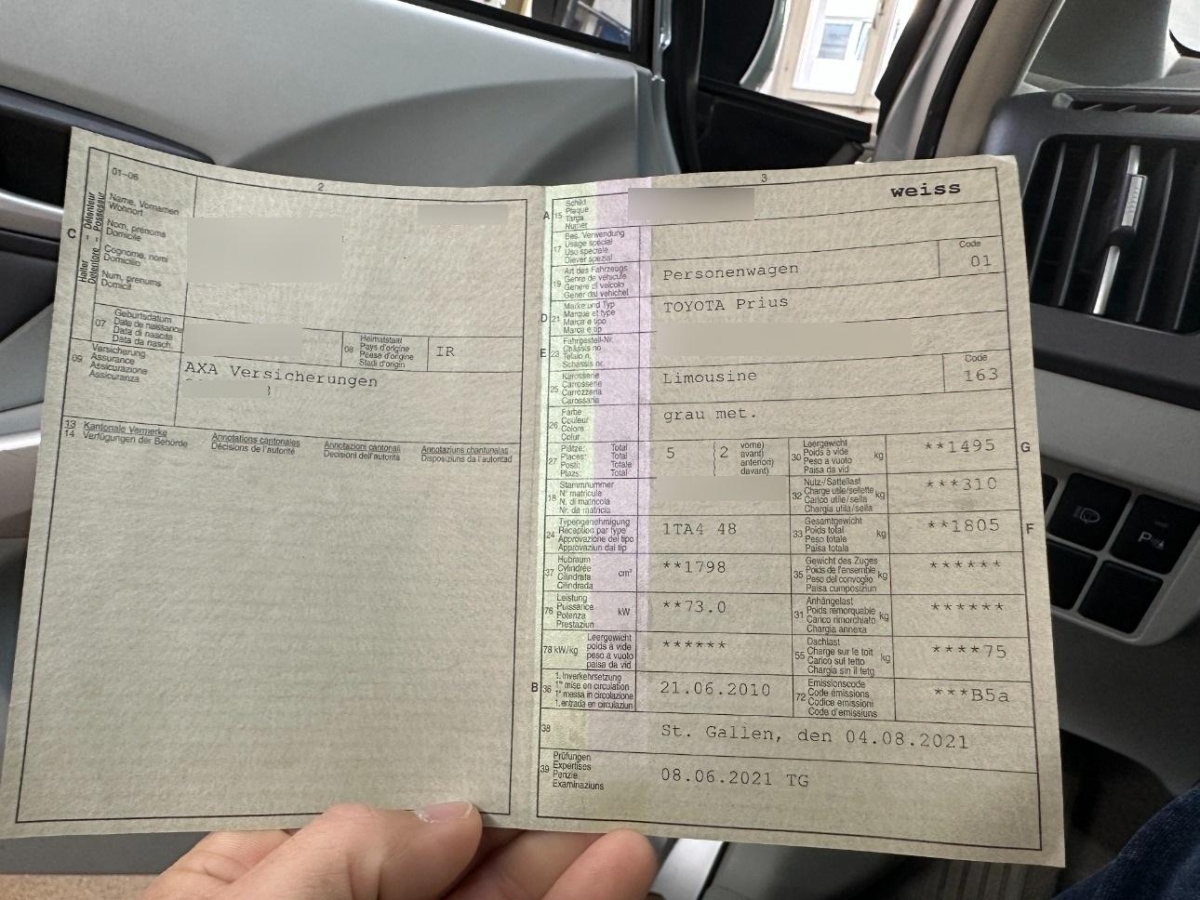 2
01-06
C
Halter Détenteur
Detentore Possessur
Name, Vornamen
Wohnort
Nom, prénoms
Domicile
Cognome, nomi
Domicilio
Num, prenums
Domicil
07
Geburtsdatum
Date de naissance
Data di nascita
Data da nasch.
08
Heimatstaat
Pays d'origine
Paese d'origine
Stadi d'origin
IR
09
Versicherung
Assurance
Assicurazione
Assicuranza
AXA Versicherungen
13 Kantonale Vermerke
14 Verfügungen der Behörde
Annotations cantonales
Décisions de l'autorité
Annotazioni cantonali
Decisioni dell'autorità
Annotaziuns chantunalas
Disposiziuns da l'autoritad
3
A 15
Schild
Plaque
Targa
Numer
weiss
17
Bes. Verwendung
Usage spécial
Uso speciale
Diever spezial
19
Art des Fahrzeugs
Genre de véhicule
Genere di veicolo
Gener dal vehichel
Personenwagen
Code
01
D 21
Marke und Typ
Marque et type
Marca e tipo
Marca e tip
TOYOTA Prius
E 23
Fahrgestell-Nr.
Châssis no
Telaio n.
Schassis nr.
25
Karosserie
Carrosserie
Carrozzeria
Carossaria
Limousine
Code
163
26
Farbe
Couleur
Colore
Colur
grau met.
27
Plätze: Total
Places: Total
Posti: Totale
Plazs: Total
5
2
vorne)
avant)
anteriori)
davant)
30
Leergewicht
Poids à vide
Peso a vuoto
Paisa da vid
kg
**1495
G
18
Stammnummer
N° matricule
N. di matricola
Nr. da matricla
32
Nutz-/Sattellast
Charge utile/sellette
Carico utile/sella
Chargia utila/sella
kg
***310
24
Typengenehmigung
Réception par type
Approvazione del tipo
Approvaziun dal tip
1TA4 48
33
Gesamtgewicht
Poids total
Peso totale
Paisa totala
kg
**1805
F
37
Hubraum
Cylindrée
Cilindrata
Cilindrada
cm³
**1798
35
Gewicht des Zuges
Poids de l'ensemble
Peso del convoglio
Paisa cumposiziun
kg
******
76
Leistung
Puissance
Potenza
Prestaziun
kW
**73.0
31
Anhängelast
Poids remorquable
Carico rimorchiato
Chargia annexa
kg
******
78 kW/kg
Leergewicht
poids à vide
peso a vuoto
paisa da vid
******
55
Dachlast
Charge sur le toit
Carico sul tetto
Chargia sin il tetg
kg
****75
B 36
1. Inverkehrsetzung
1re mise en circulation
1. messa in circolazione
1. entrada en circulaziun
21.06.2010
72
Emissionscode
Code émissions
Codice emissioni
Code d'emissiuns
***B5a
38
St. Gallen, den 04.08.2021
39
Prüfungen
Expertises
Perizie
Examinaziuns
08.06.2021 TG